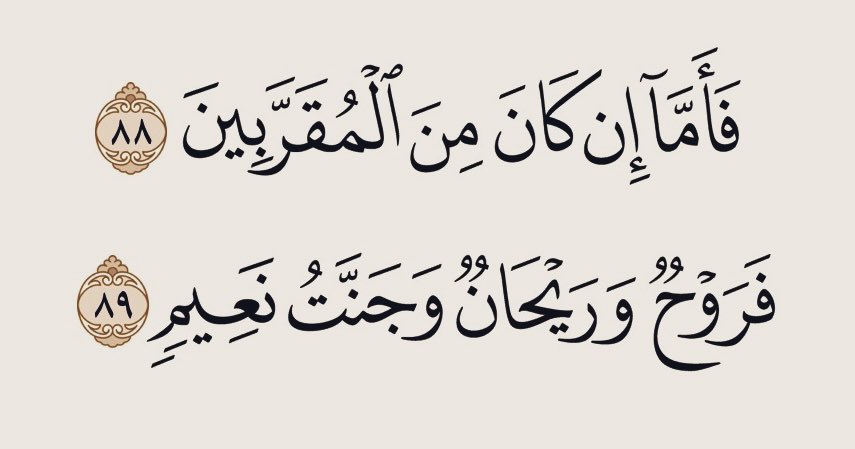 فَأَمَّآ إِن كَانَ مِنَ ٱلْمُقَرَّبِينَ ٨٨
فَرَوْحٌ وَرَيْحَانٌ وَجَنَّتُ نَعِيمٍ ٨٩